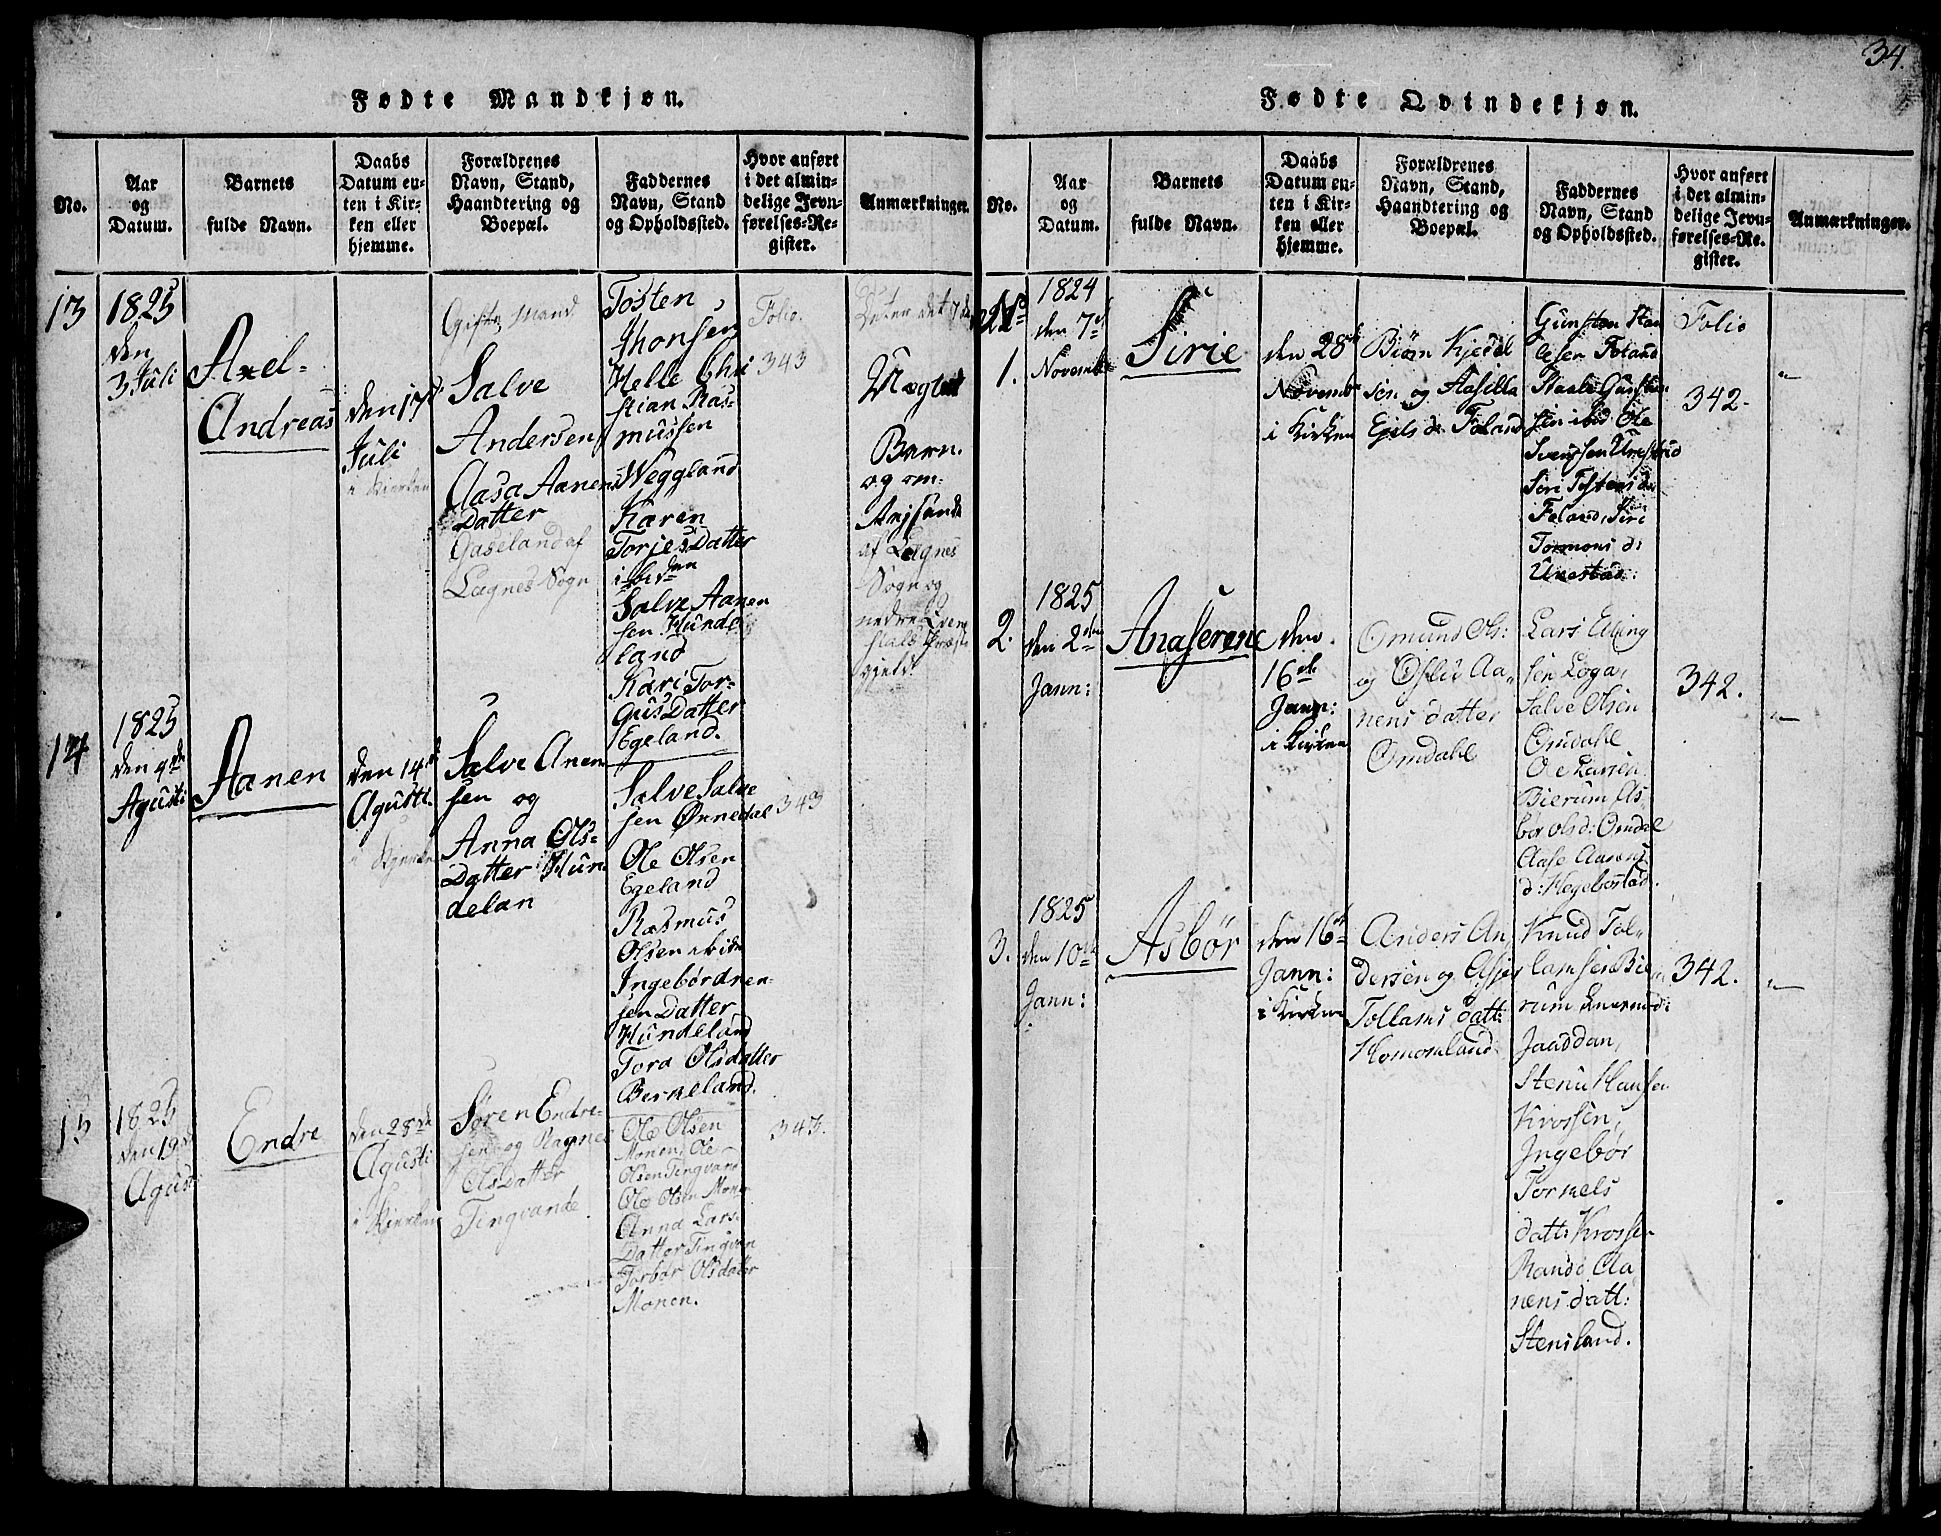 34.
Fødte Mandkjøn.
No.
Aar
og
Datum.
Barnets
fulde Navn.
Daabs
Datum en-
ten i Kir-
ken eller
hjemme.
Forældrenes
Navn, Stand,
Haandtering og
Boepæl.
Faddernes
Navn, Stand
og Opholdssted.
Hvor anført
i det almin-
delige Jevn-
førelses-Re-
gister.
Anmærkninger.
13
1825
den
3 Juli
Axel-
Andreas
den 17de
Juli
i Kierken
Gifte Mand
Salve
Andersen
Aasa Aanens
Datter
Gaseland af
Lagnes Sogn
Tosten
Thonsen
Helle Chri
stian Ras-
mussen
Weggland
Karen
Torjes Datter
ibiden
Salve Aanen
sen Hunde
land
Kari Tor-
Gus Datter
Egeland.
Folio.
343
Barn.
og om-
af Lagnes
Sogn og
nedre
gield.
14
1825
den 4de
Agusti
Aanen
den 14de
Agusti.
i Kierke
Salve Anen
sen og
Anna Ols-
Datter Hun
delan
Salve Salve
sen Ønnedal
Ole Olsen
Egeland
Rasmus
Olsen ibide
Hundeland
Tora Olsdatter
Berkeland.
343
15
1825
den 19de
Agust
Endre
den 28de
Agusti
i Kierken
Søren Endre-
sen og Ragne
Olsdatter
Tingvande.
Ole Olsen
Monen, Ole
Olsen Tingvane
Ole Olsen Mone
Anna Lars-
Datter Tingvan
Torbør Olsdatter
Monen.
343.
Fødte Qvindekjøn.
No.
Aar
og
Datum.
Barnets
fulde Navn.
Daabs
Datum en-
ten i Kir-
ken eller
hjemme.
Forældrenes
Navn, Stand,
Haandtering og
Boepæl.
Faddernes
Navn, Stand
og Opholdssted.
Hvor anført
i det almin-
delige Jevn-
førelses-Re-
gister.
Anmærkninger.
1.
1824
den 7de
Novemb
Sirie
den 28de
Novemb
i Kirken
Biøn Kjedel
sen og Aasilla
Egils d: Foland
Gunsten Staa
lesen Foland
Staale Gunsten
sen ibid Ole
Svenssen Unestad
Siri Tostens da
Foland, Siri
Tormons d:
Unestad:
Folio
342.
2.
1825
den 2den
Jann:
Anaserene
den
16de
Jann:
i Kirken
Omund Ols:
og Osliv Aa-
nens datter
Omdahl
Lars Elling
sen Loga,
Salve Olsen
Omdahl
Ole Larsen
Bierum As
bør olsd: Omdal
Aase Aanens
d: Hegebostad.
342.
3.
1825
den 10de
Jann:
Asbør
den 16de
Jann:
i Kirken
Anders An
dersen og Asper
Tollams datt:
Homomland
Knud Tol-
lamsen Bie
rum
Jaaddan,
Stenu Hansen
Krossen,
Ingebør
Tormels
datt: Krossen
Randi Aa
nens datt:
Stensland.
342.